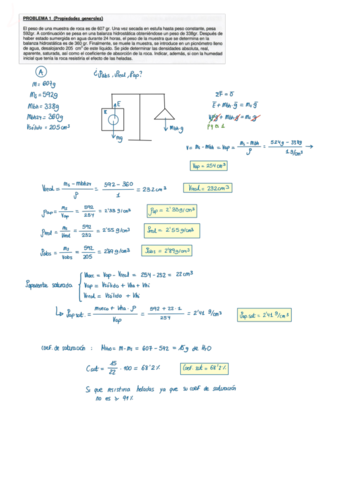 PROBLEMA 1 (Propiedades generales)
El peso de una muestra de roca es de 607 gr. Una vez secada en estufa hasta peso constante, pesa
592gr. A continuación se pesa en una balanza hidrostática obteniéndose un peso de 338gr. Después de
haber estado sumergida en agua durante 24 horas, el peso de la muestra que se determina en la
balanza hidrostática es de 360 gr. Finalmente, se muele la muestra, se introduce en un picnómetro lleno
de agua, desalojando 205 cm³ de este líquido. Se pide determinar las densidades absoluta, real,
aparente, saturada, así como el coeficiente de absorción de la roca. Indicar, además, si con la humedad
inicial que tenía la roca resistiría el efecto de las heladas.
A
m = 607g
ms = 592g
Mba = 338g
Mba24 = 360g
Vsólido = 205 cm³
¿ρabs, ρreal, ρap?
E
mg
mba·g
ΣF = 0
E + mba·g = ms·g
Vap = 254 cm³
Vreal = ms - mba24 / ρ = 592 - 360 / 1 = 232 cm³
Vreal = 232 cm³
ρap = ms / Vap = 592 / 254 = 2'33 g/cm³
ρreal = ms / Vreal = 592 / 232 = 2'55 g/cm³
ρabs = ms / Vabs = 592 / 205 = 2'89 g/cm³
ρabs = 2'89 g/cm³
Suponiendo saturada
Vacc = Vap - Vreal = 254 - 232 = 22 cm³
Vap = Vsólido + Vha + Vhi
Vreal = Vsólido + Vhi
ρap.sat = = 592 + 22·1 / 254 = 2'42 g/cm³
ρap.sat = 2'42 g/cm³
coef. de saturación : = m - ms = 607 - 592 = 15g de H₂O
Csat = 15 / 22 · 100 = 68'2%
Coef. sat = 68'2%
Sí que resistiría heladas ya que su coef de saturación
no es > 91%